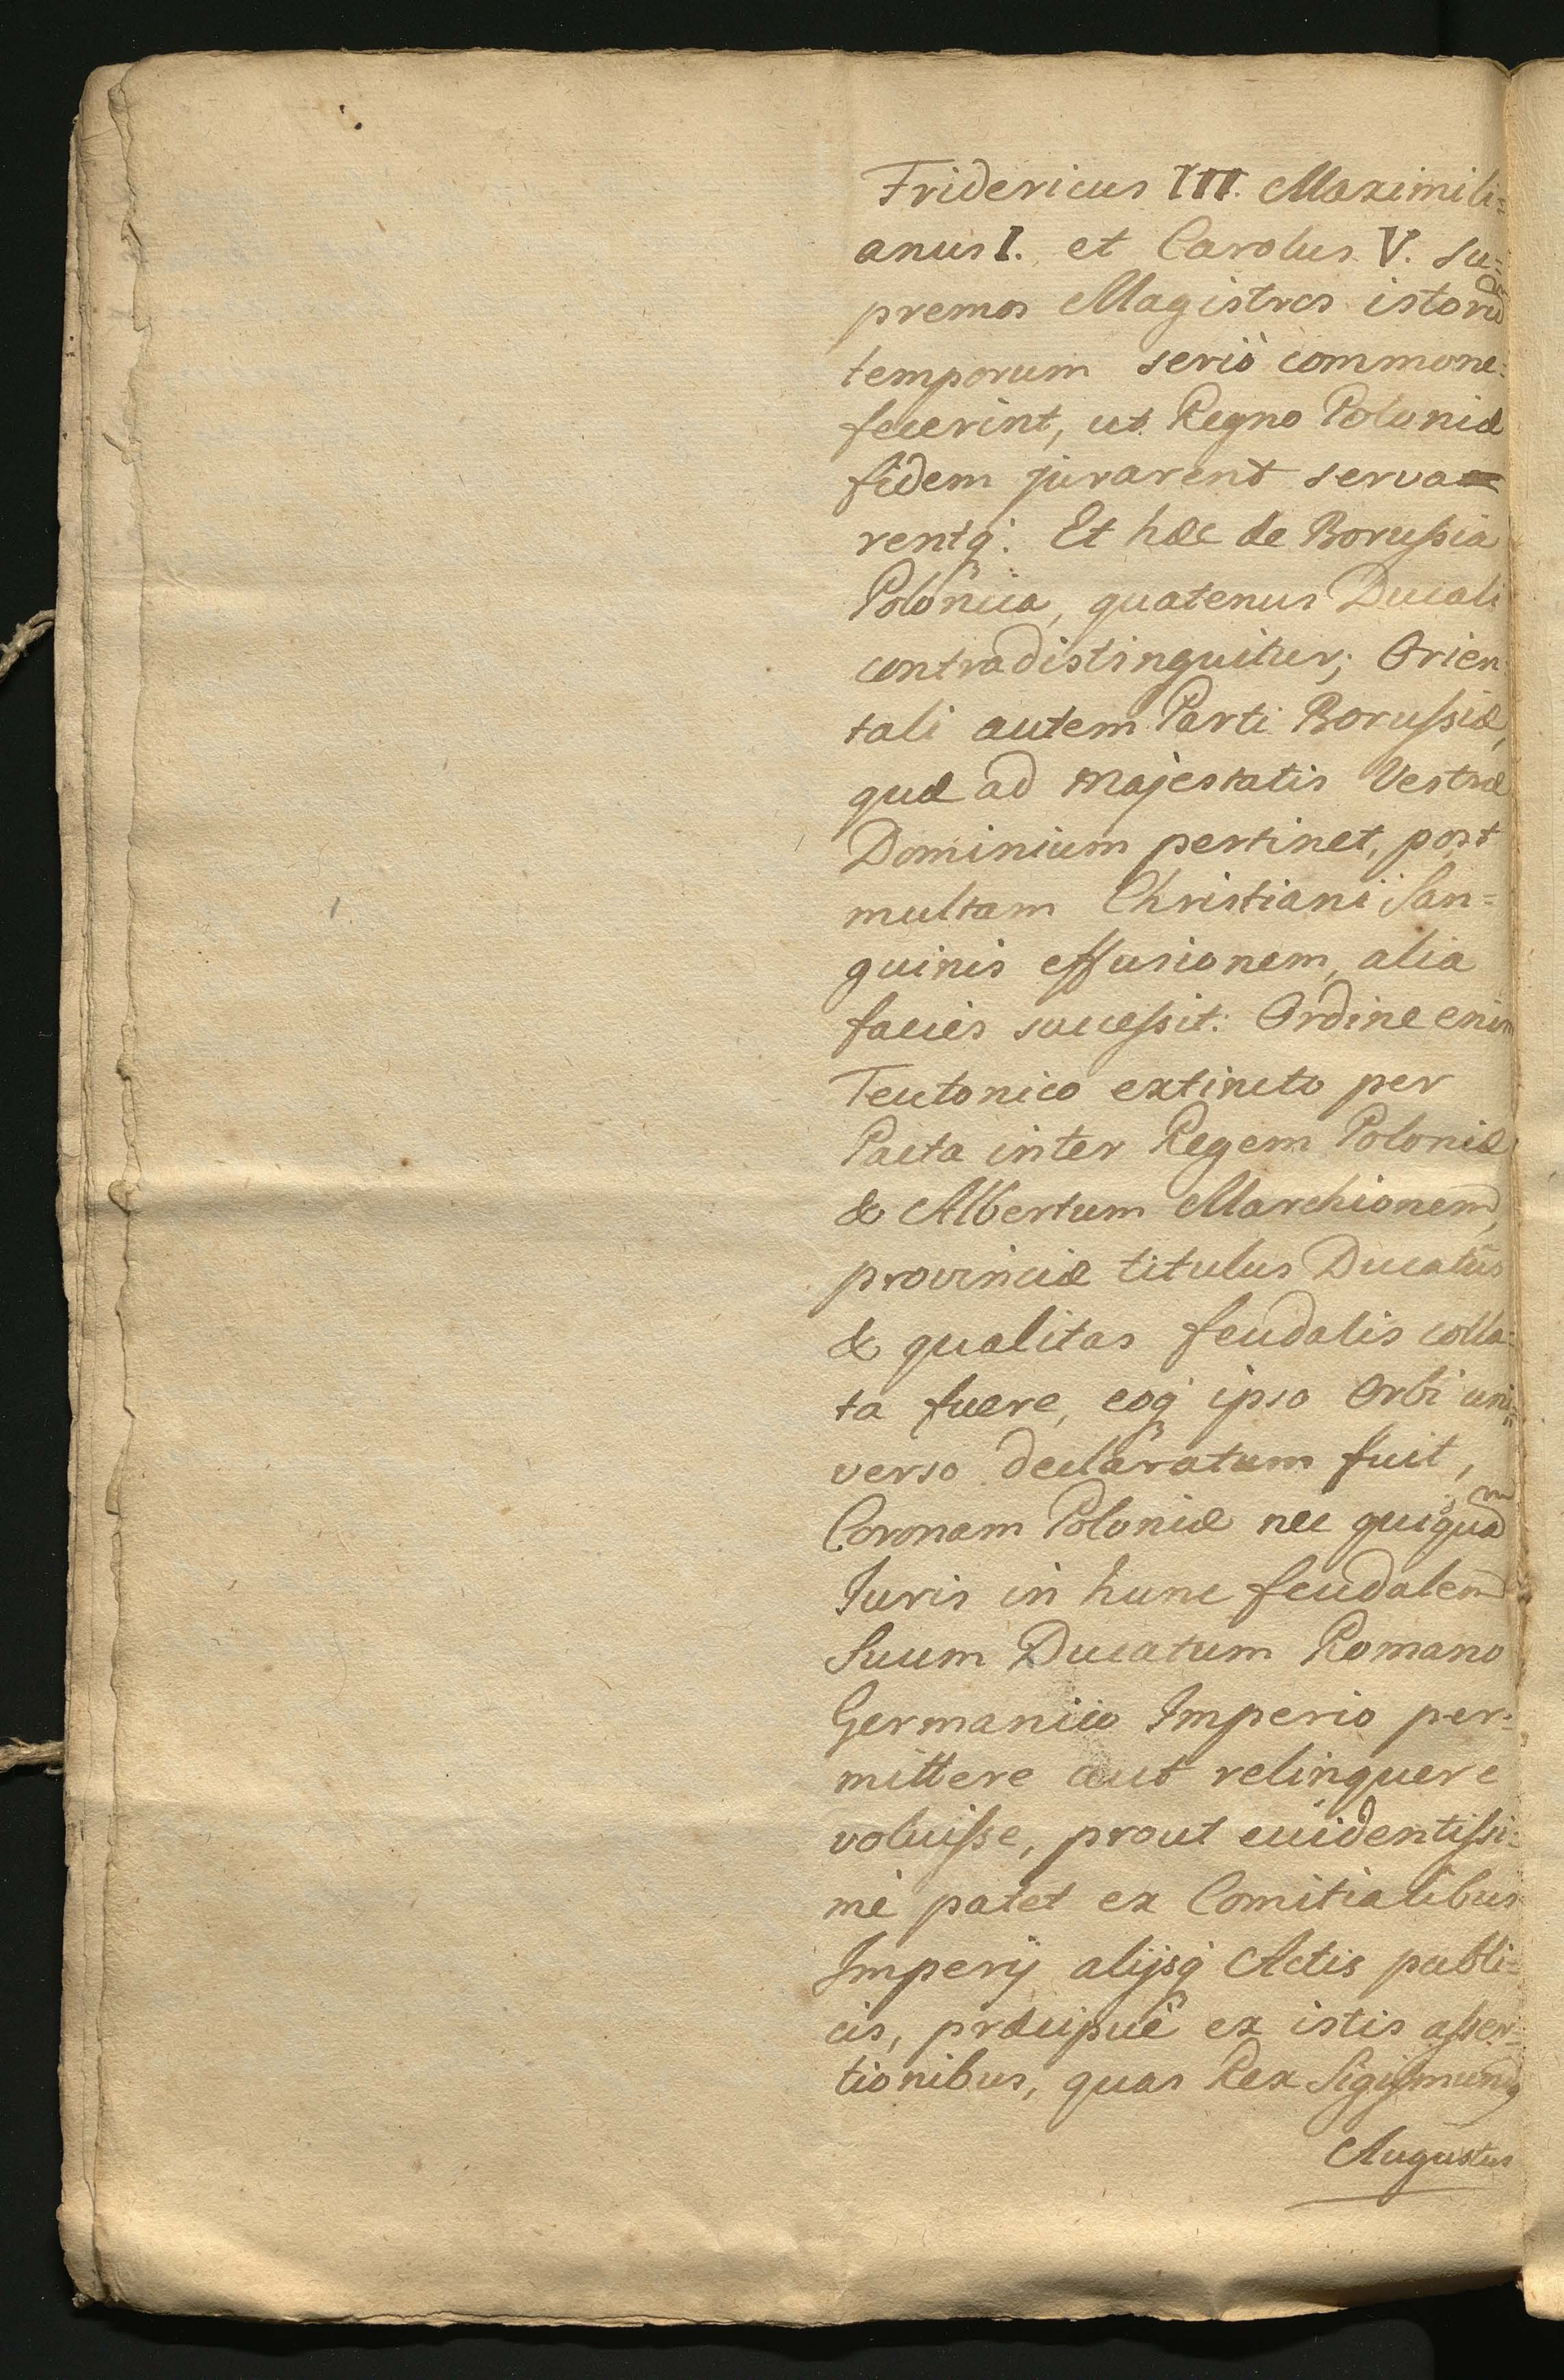 Fridericus III. Maximili=
anus I. et Carolus V. su=
premos Magistros istorum
temporum seriò commone=
fecerint, ut Regno Poloniæ
fidem jurarent serva
rentq́: Et hæc de Borussia
Polonica, quatenus Ducali
contradistinguitur; Orien=
tali autem Parti Borussiæ,
quæ ad Majestatis Vestræ
Dominium pertinet, post
multam Christiani San=
guinis effusionem, alia
facies successit: Ordine enim
Teutonico extincto per
Pacta inter Regem Poloniæ
& Albertum Marchionem,
provinciæ titulus Ducatûs
& qualitas feudalis colla=
ta fuere, eoq́ ipso Orbi uni=
verso declaratum fuit,
Coronam Poloniæ nec quiquam
Iuris in hunc feudalem
Suum Ducatum Romano
Germanico Imperio per=
mittere aut relinquere
voluisse, prout euidentissi=
mè patet ex Comitialibus
Imperij alijsq́ Actis publi=
cis, præcipuè ex istis asser=
tionibus, quas Rex Sigismundq
Augustus